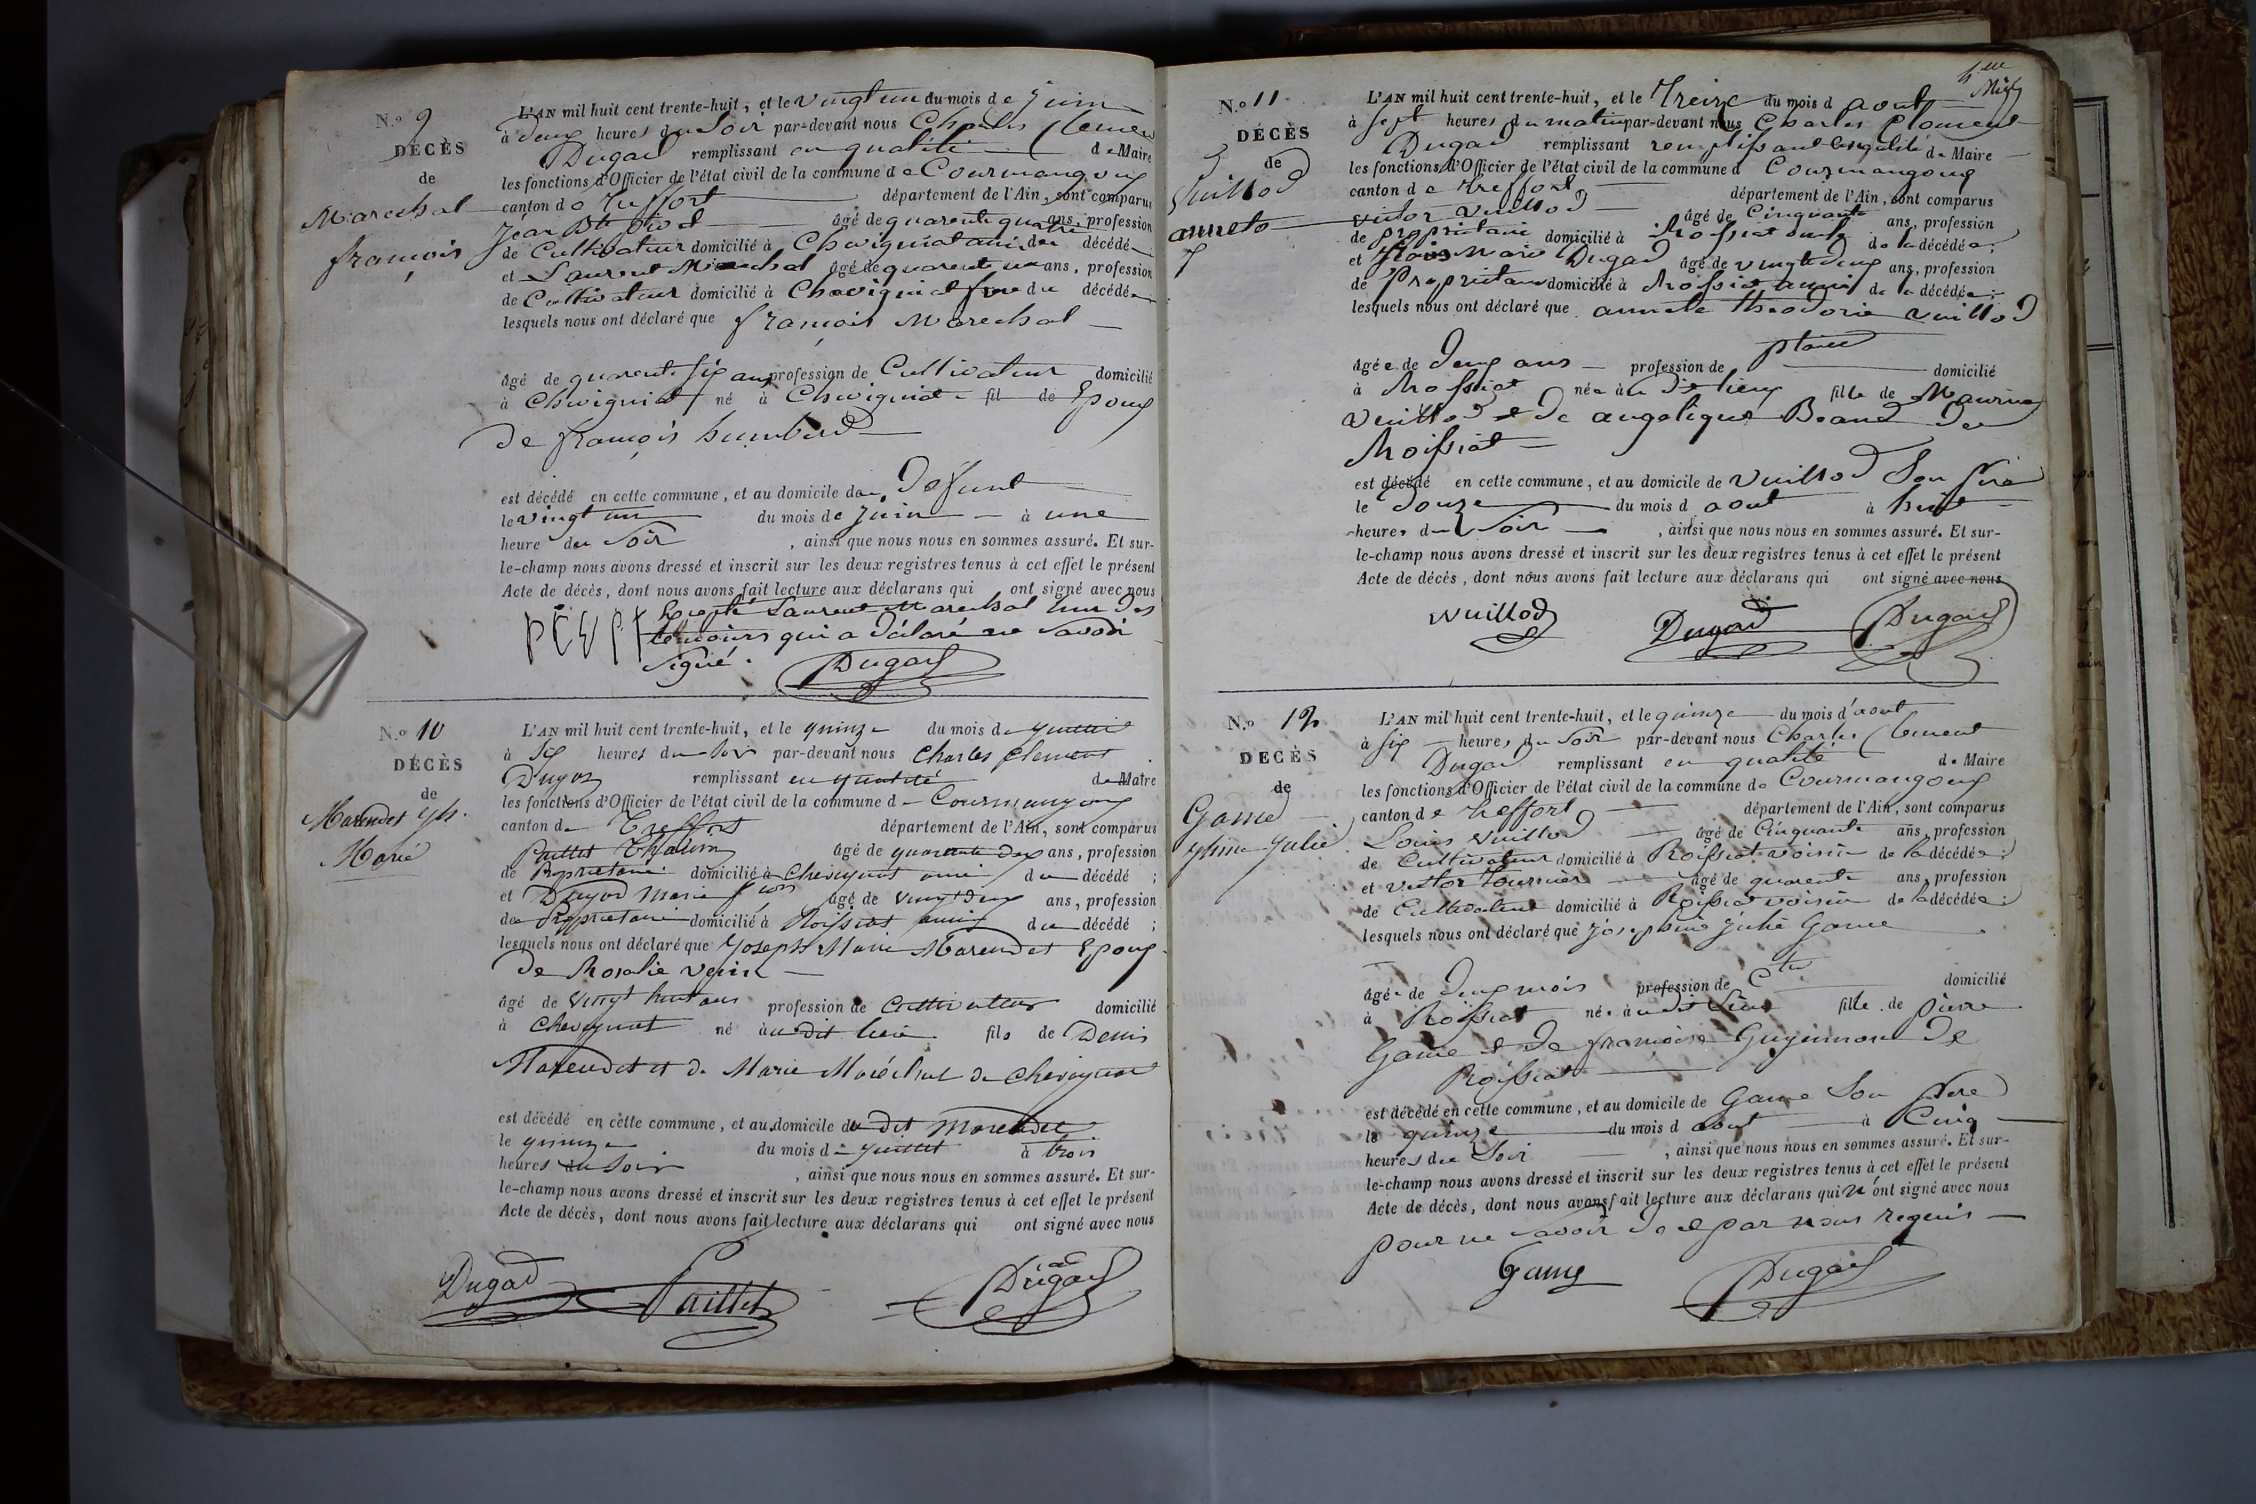 N.o 9
DÉCÈS
de
Marechal
françois
L'AN mil huit cent trente-huit, et le vingt un du mois de juin
à deux heures du Soir par-devant nous Charles Clement
Dugad remplissant en qualité de Maire
les fonctions d'Officier de l'état civil de la commune de Courmangoux
canton de Treffort département de l'Ain, sont comparus
Jean Bte âgé de quarante quatre ans, profession
de Cultivateur domicilié à Chevigniat ami du décédé
et Laurent Marechal âgé de quarente un ans, profession
de Cultivateur domicilié à Chevigniat frere du décédé
lesquels nous ont déclaré que françois Marechal
âgé de quarente six ans profession de Cultivateur domicilié
à Chevigniat né à Chevigniat fil de Epoux
de françois humberd
est décédé en cette commune, et au domicile du Defunt
le vingt un du mois de juin à une
heure du Soir, ainsi que nous nous en sommes assuré. Et sur-
le-champ nous avons dressé et inscrit sur les deux registres tenus à cet effet le présent
Acte de décès, dont nous avons fait lecture aux déclarans qui ont signé avec nous
Excepté Laurent Marechal l'un des
temoins qui a déclaré ne savoir
signé.
Dugad
N.o 10
DÉCÈS
de
Marendet Jph.
Marie
L'AN mil huit cent trente-huit, et le quinze du mois de juillet
à six heures du soir par-devant nous Charles Clement
Dugad remplissant en qualité de Maire
les fonctions d'Officier de l'état civil de la commune de Courmangoux
canton de Treffort département de l'Ain, sont comparus
Paillet âgé de quarante deux ans, profession
de Propriétaire domicilié à Chevignat ami du décédé ;
et Dugad Marie fçois âgé de vingt deux ans, profession
de Propriétaire domicilié à Roissiat ami du décédé ;
lesquels nous ont déclaré que Joseph Marie Marendet Epoux
de Rosalie
âgé de vingt huit ans profession de cultivateur domicilié
à Chevignat né au dit lieu fils de Denis
Marendet et de Marie Maréchal de Chevignat
est décédé en cette commune, et au domicile du dit Marendet
le quinze du mois de juillet à trois
heures du soir, ainsi que nous nous en sommes assuré. Et sur-
le-champ nous avons dressé et inscrit sur les deux registres tenus à cet effet le présent
Acte de décès, dont nous avons fait lecture aux déclarans qui ont signé avec nous
Dugad Paillet Dugad
N.o 11
DÉCÈS
de
Vuillod
annete
L'AN mil huit cent trente-huit, et le Treize du mois d aout
à sept heures du matin par-devant nous Charles Clement
Dugad remplissant remplissant les qualité de Maire
les fonctions d'Officier de l'état civil de la commune d Courmangoux
canton de Treffort département de l'Ain, sont comparus
victor Vuillod âgé de Cinquante ans, profession
de proprietaire domicilié à Roissiat oncle de la décédée ;
et fçois Marie Dugad âgé de vingt deux ans, profession
de Proprietaire domicilié à Roissiat ami de la décédée ;
lesquels nous ont déclaré que annete théodorie vuillod
âgée de deux ans profession de domicilié
à Roissiat née au dit lieux fille de Maurice
Vuillod et de angelique Beand de
Roissiat
est décédé en cette commune, et au domicile de Vuillod Son Père
le Douze du mois d aout à huit
heures du Soir, ainsi que nous nous en sommes assuré. Et sur-
le-champ nous avons dressé et inscrit sur les deux registres tenus à cet effet le présent
Acte de décès, dont nous avons fait lecture aux déclarans qui ont signé avec nous
Vuillod Dugad Dugad
N.o 12
DECÈS
de
Game
Julie
L'AN mil huit cent trente-huit, et le quinze du mois d'aout
à six heures du Soir par-devant nous Charles Clement
Dugad remplissant en qualité de Maire
les fonctions d'Officier de l'état civil de la commune de Courmangoux
canton de Treffort département de l'Ain, sont comparus
Louis Vuillod âgé de Cinquante ans, profession
de Cultivateur domicilié à Roissiat voisin de la décédée ;
et victor Tournier âgé de quarente ans, profession
de Cultivateur domicilié à Roissiat voisin de la décédée ;
lesquels nous ont déclaré que josephine julie Game
âgée de deux mois profession de domicilié
à Roissiat née au dit lieu fille de pierre
Game et de françoise Guyennon de
Roissiat
est décédé en cette commune, et au domicile de Game Son Père
le quinze du mois d aout à Cinq
heures du Soir, ainsi que nous nous en sommes assuré. Et sur-
le-champ nous avons dressé et inscrit sur les deux registres tenus à cet effet le présent
Acte de décès, dont nous avons fait lecture aux déclarans qui n'ont signé avec nous
pour ne savoir de ce par nous requis
Game Dugad